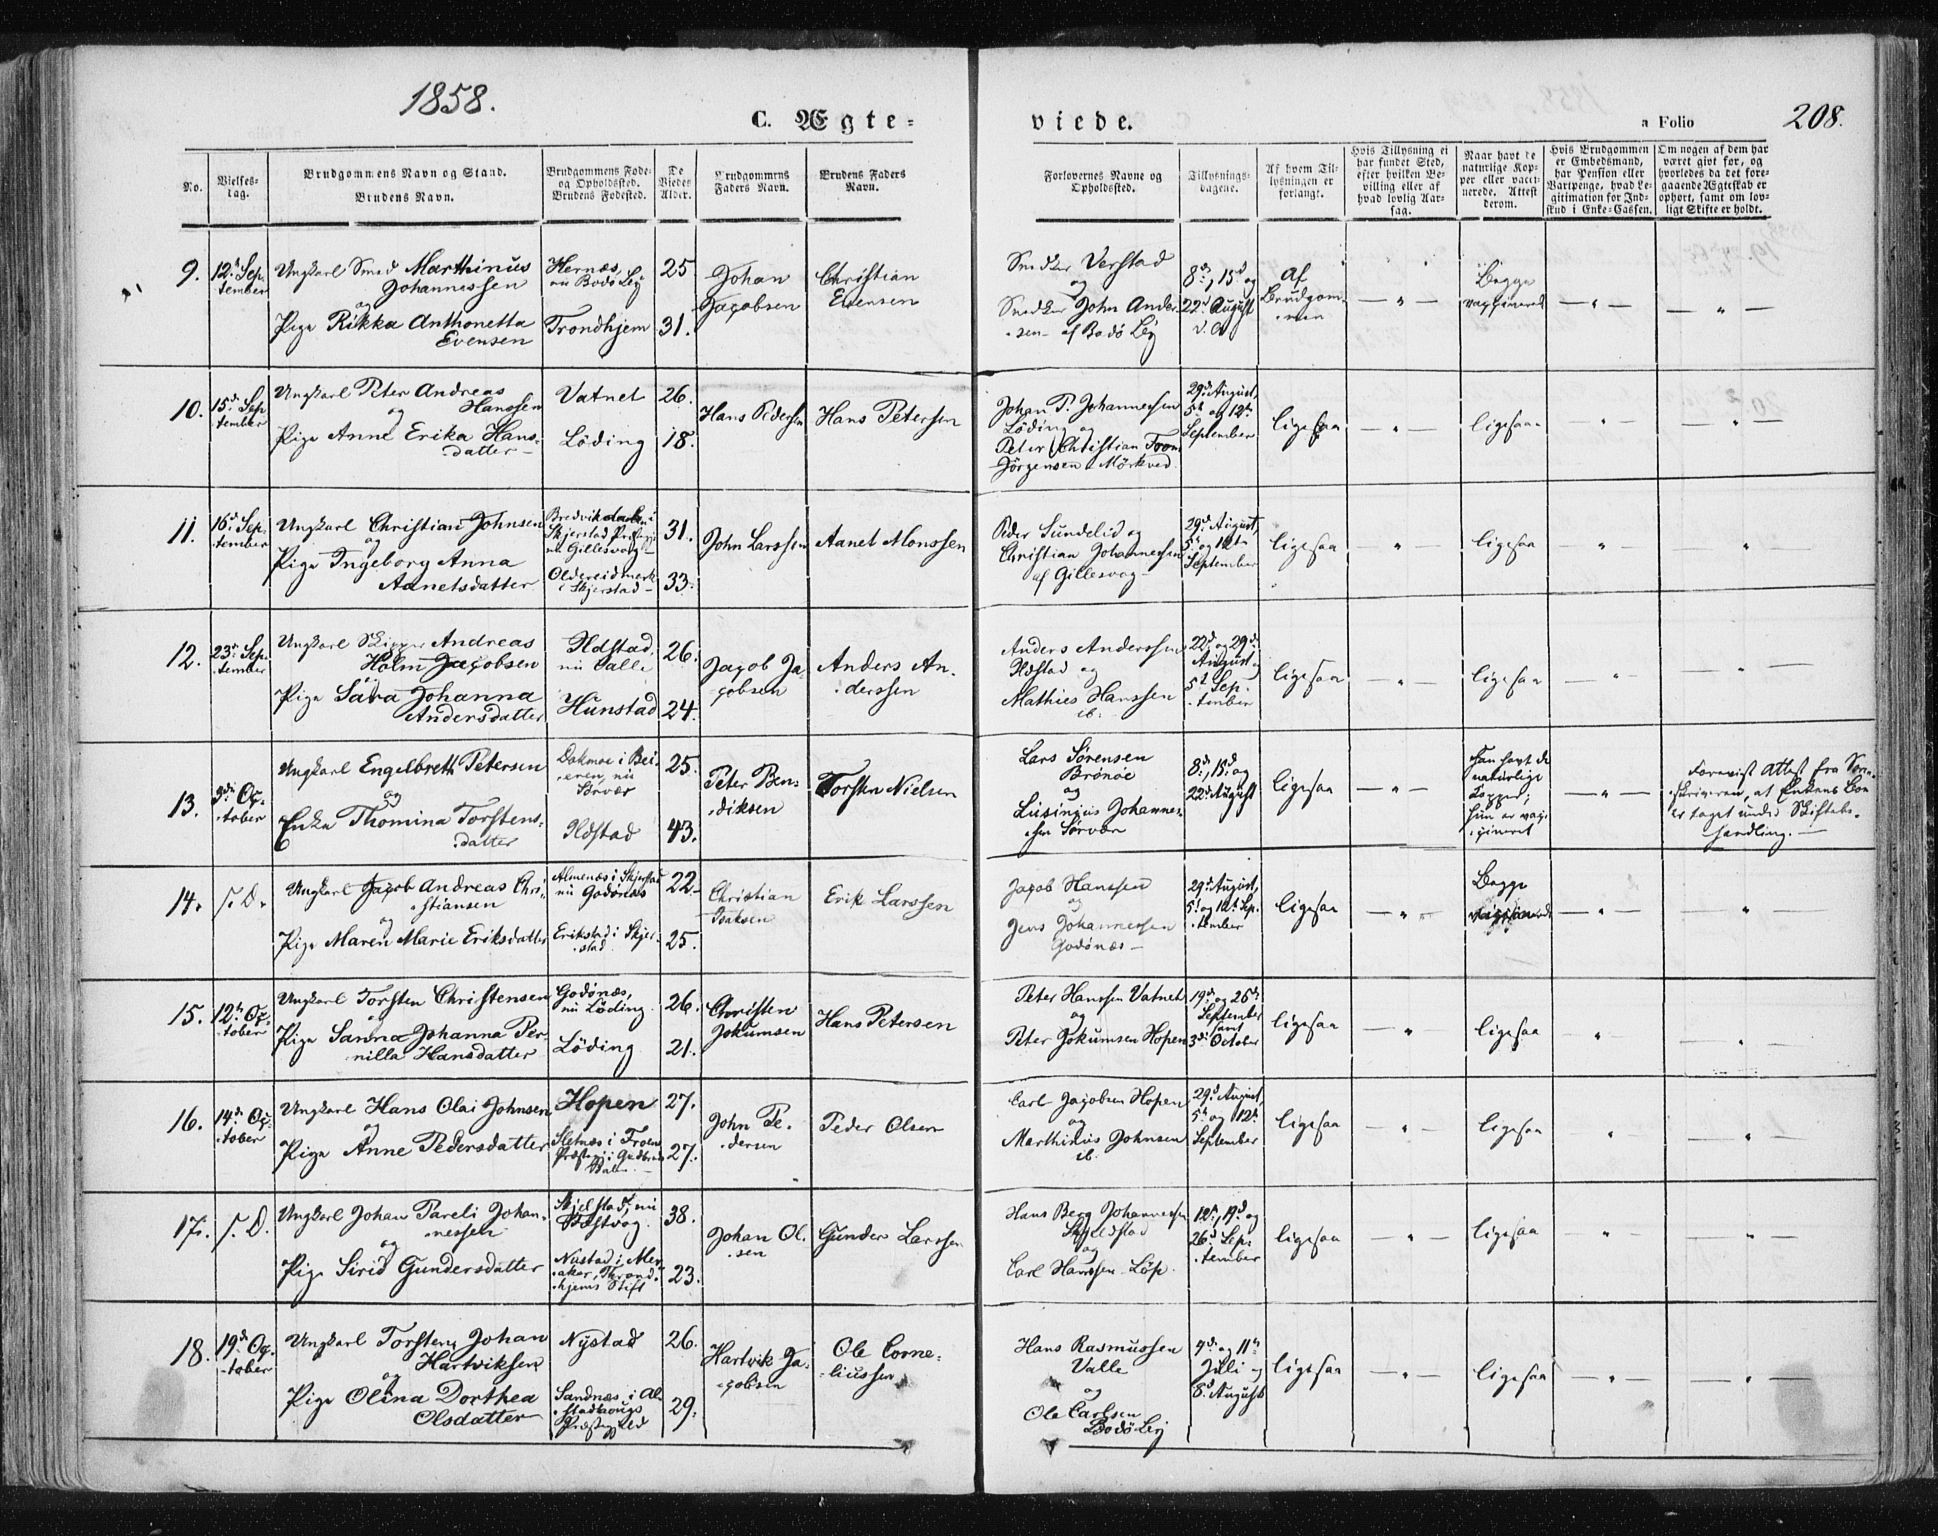 1858.
C. Ægte-
viede.
a Folio
208.
No.
Vielses-
tag.
Brudgommens Navn og Stand.
Brudens Navn.
Brudgommens Føde-
og Opholdssted.
Brudens Fødested.
De
Viedes
Alder.
Brudgommens
Faders Navn.
Brudens Faders
Navn.
Forlovernes Navne og
Opholdssted.
Tillysnings-
dagene.
Af hvem Til-
lysningen er
forlangt.
Hvis Tillysning ei
har fundet Sted,
efter hvilken Be-
villing eller af
hvad lovlig Aar-
sag.
Naar havt de
naturlige Kop-
per eller vacci-
nerede. Attest
derom.
Hvis Brudgommen
er Embedsmand,
har Pension eller
Vartpenge, hvad Le-
gitimation for Ind-
skud i Enke-Cassen.
Om nogen af dem har
været givt før, og
hvorledes da det fore-
gaaende Ægteskab er
ophørt, samt om lov-
ligt Skifte er holdt.
9.
12te Sep-
tember
Ungkarl Smed Marthinus
Johannessen
og
Pige Rikka Anthonetta
Evensen
Hernæs,
nu Bodø Lej
Trondhjem
25
31.
Johan
Jacobsen
Christian
Evensen
Smed Verstad
og
Smed John Ander-
sen af Bodø Lej
8de, 15d og
22d August
d. A.
Af
Brudgom-
men
— " —
Begge
vaccinerede
— " —
— " —
10.
15d Sep-
tember
Ungkarl Peter Andreas
Hanssen
og
Pige Anne Erika Hans-
datter
Vatnet
Løding
26.
18.
Hans Pedersen
Hans Petersen
Johan P. Johannessen
Løding og
Peter Christian
Jørgensen Mørkved
29d August,
5te og 12te
September
ligesaa
— " —
ligesaa
— " —
— " —
11.
16d Sep-
tember
Ungkarl Christian Johnsen
og
Pige Ingeborg Anna
Aanetsdatter
Skjerstad
nu Gillesvaag
i Skjerstad
31.
33.
John Larssen
Aanet Monssen
Peder Sundelid og
Christian Johannessen
af Gillesvaag
29d August,
5te og 12te
September
ligesaa
— " —
ligesaa
— " —
"
12.
23d Sep-
tember
Ungkarl Skipper Andreas
Holm Jacobsen
Pige Sara Johanna
Andersdatter
Ildstad,
nu Valle
Hunstad
26.
24.
Jacob Ja-
cobsen
Anders An-
derssen
Anders Anderssen
Ildstad og
Mathies Hanssen
ib:
22d og 29d
August og
5te Sep-
tember
ligesaa
— " —
ligesaa
— " —
— " —
13.
3die Oc-
tober
Ungkarl Engelbrett Petersen
og
Enke Thomina Torstens-
datter
Dokmoe i Bei-
eren, nu
Ildstad
25.
43.
Peter Ben-
diksen
Torsten Nielsen
Lars Sørensen
Brønøe
og
Johannes-
sen Sørvær
8de, 15d og
22d August
ligesaa
— " —
Han havt de
naturlige
Kopper;
hun er vac-
cineret
— " —
Forevist Attest fra Soren-
skriveren, at Enkens Bo
er taget under Skiftebe-
handling. —
14.
s. D.
Ungkarl Jacob Andreas Chri-
stiansen
og
Pige Maren Marie Eriksdatter
Almenæs i Skjerstad
nu Godønæs
Erikstad i Skjer-
stad
22
25.
Christian
Isaksen
Erik Larssen
Jacob Hanssen
og
Jens Johannessen
Godønæs
29d August,
5te og 12te Sep-
tember
ligesaa
— " —
Begge
vaccinerede
— " —
"
15.
12te Oc-
tober
Ungkarl Torsten Christensen
og
Pige Sanna Johanna Per-
nilla Hansdatter
Godønæs,
nu Løding
Løding
26.
21.
Christen
Jokumsen
Hans Petersen
Peter Hanssen Vatnet
og
Peter Jokumsen Hopen
19d og 26de
September
samt
3die October
ligesaa
— " —
ligesaa
"
— " —
16.
14d Oc-
tober
Ungkarl Hans Olai Johnsen
og
Pige Anne Pedersdatter
Hopen
Sletnæs i Froens
Præstegj. i Gudbrands-
dalen
27.
27.
John Pe-
dersen
Peder Olsen
Carl Jacobsen Hopen
og
Marthinus Johnsen
ib.
29d August,
5te og 12te
September
ligesaa
— " —
ligesaa
"
— " —
17.
s. D.
Ungkarl Johan Pareli Johan-
nessen
og
Pige Sirid Gundersdatter
Skjelstad, nu
Nustad i Mer-
aker, Thrond-
hjems Stift
38.
23.
Johan Ol-
sen
Gunder Larssen
Hans Berg Johannessen
Skjelstad
og
Carl Hanssen Løp.
12te, 19d og
26d Sep-
tember
ligesaa
— " —
ligesaa
— " —
— " —
18.
19d Oc-
tober
Ungkarl Torsten Johan
Hartviksen
og
Pige Olina Dorthea
Olsdatter
Nystad
Sandnæs i Al-
stadhougs
Præstegjeld
26.
29.
Hartvik Ja-
cobsen
Ole Corne-
liussen
Hans Rasmussen
Valle
og
Ole Carlsen
Bodø Lej
4de og 11te
Juli og
8d August
ligesaa
— " —
ligesaa
— " —
— " —